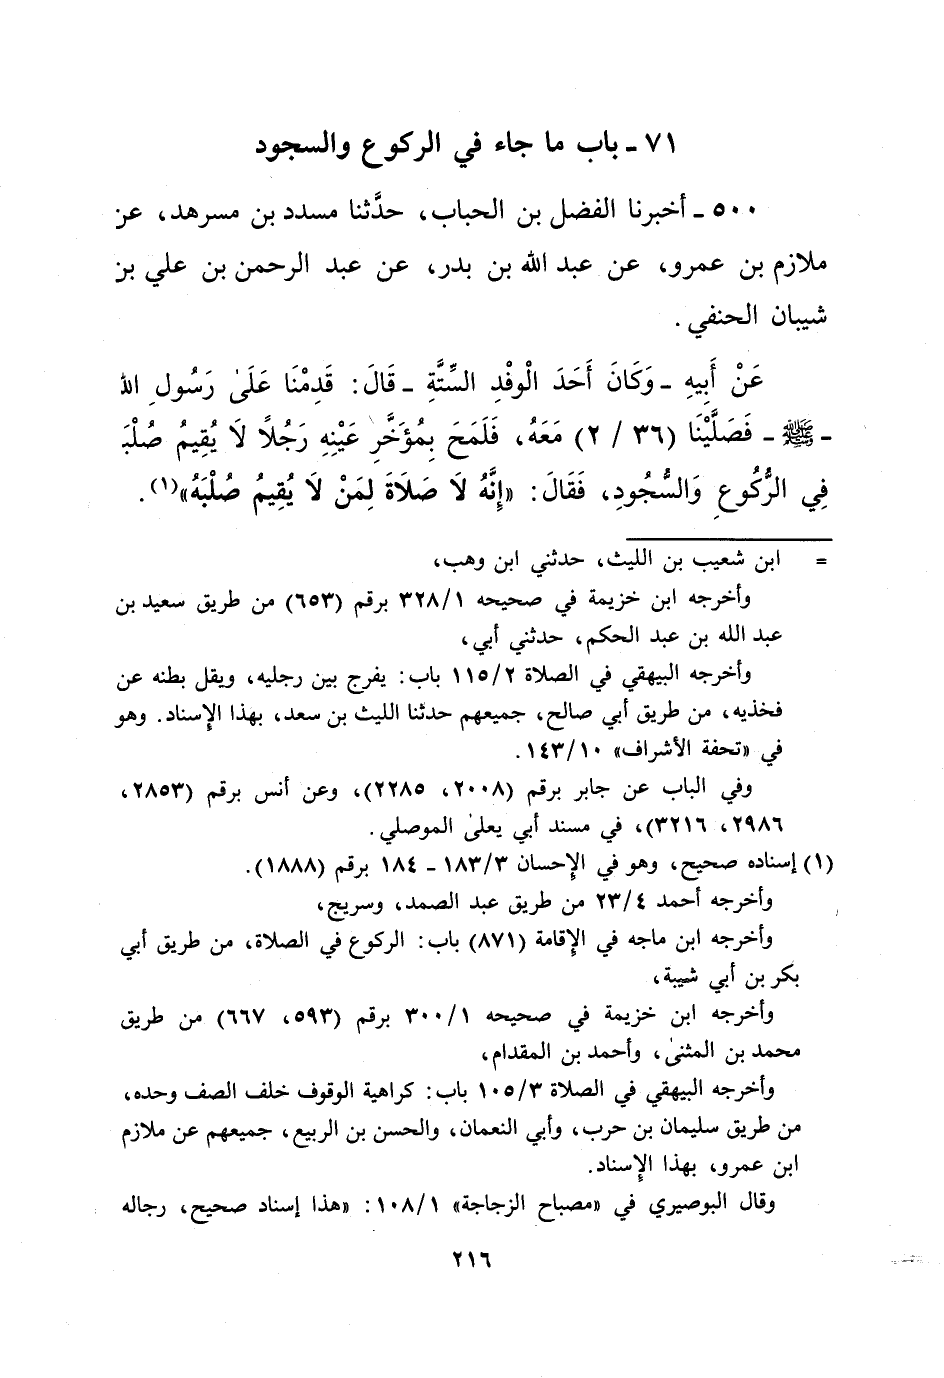 ٧١ - باب ما جاء في الركوع والسجود
٥٠٠ - أخبرنا الفضل بن الحباب، حدَّثنا مسدد بن مسرهد، عن
ملازم بن عمرو، عن عبد الله بن بدر، عن عبد الرحمن بن علي بن
شيبان الحنفي.
عَنْ أَبِيهِ - وَكَانَ أَحَدَ الْوَفْدِ السِّتَّةِ - قَالَ: قَدِمْنَا عَلَىٰ رَسُولِ اللهِ
- ﷺ - فَصَلَّيْنَا (٣٦ / ٢) مَعَهُ، فَلَمَحَ بِمُؤَخَّرِ عَيْنِهِ رَجُلاً لَا يُقِيمُ صُلْبَهُ
فِي الرُّكُوعِ وَالسُّجُودِ، فَقَالَ: «إِنَّهُ لَا صَلَاةَ لِمَنْ لَا يُقِيمُ صُلْبَهُ»(١).
= ابن شعيب بن الليث، حدثني ابن وهب،
وأخرجه ابن خزيمة في صحيحه ٣٢٨/١ برقم (٦٥٣) من طريق سعيد بن
عبد الله بن عبد الحكم، حدثني أبي،
وأخرجه البيهقي في الصلاة ١١٥/٢ باب: يفرج بين رجليه، ويقل بطنه عن
فخذيه، من طريق أبي صالح، جميعهم حدثنا الليث بن سعد، بهذا الإسناد. وهو
في «تحفة الأشراف» ١٤٣/١٠.
وفي الباب عن جابر برقم (٢٠٠٨، ٢٢٨٥)، وعن أنس برقم (٢٨٥٣،
٢٩٨٦، ٣٢١٦)، في مسند أبي يعلىٰ الموصلي.
(١) إسناده صحيح، وهو في الإحسان ١٨٣/٣ - ١٨٤ برقم (١٨٨٨).
وأخرجه أحمد ٢٣/٤ من طريق عبد الصمد، وسريج،
وأخرجه ابن ماجه في الإقامة (٨٧١) باب: الركوع في الصلاة، من طريق أبي
بكر بن أبي شيبة،
وأخرجه ابن خزيمة في صحيحه ٣٠٠/١ برقم (٥٩٣، ٦٦٧) من طريق
محمد بن المثنىٰ، وأحمد بن المقدام،
وأخرجه البيهقي في الصلاة ١٠٥/٣ باب: كراهية الوقوف خلف الصف وحده،
من طريق سليمان بن حرب، وأبي النعمان، والحسن بن الربيع، جميعهم عن ملازم
ابن عمرو، بهذا الإسناد.
وقال البوصيري في «مصباح الزجاجة» ١٠٨/١: «هذا إسناد صحيح، رجاله
٢١٦